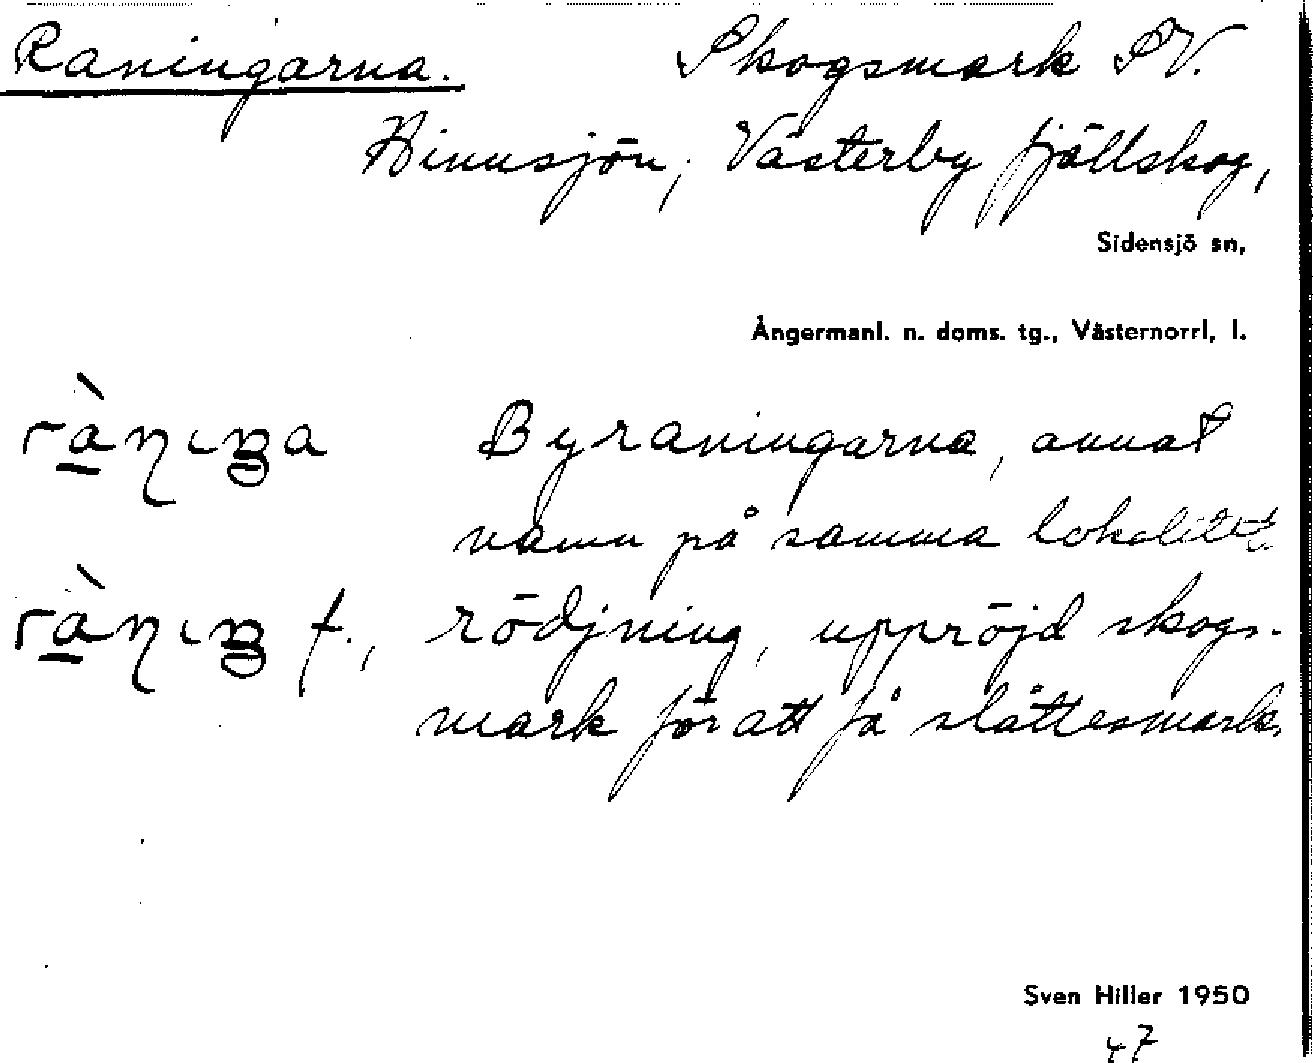 Raningarna. Skogsmark SV.
Hinnsjön, Västerby fjällskog,
Sidensjö sn,
Ångermanl. n. doms. tg., Västernorrl, l.
Byraningarna, annat
namn på samma lokalitet
f., rödjning, uppröjd skogs-
mark för att få slåttesmark.
Sven Hiller 1950
47